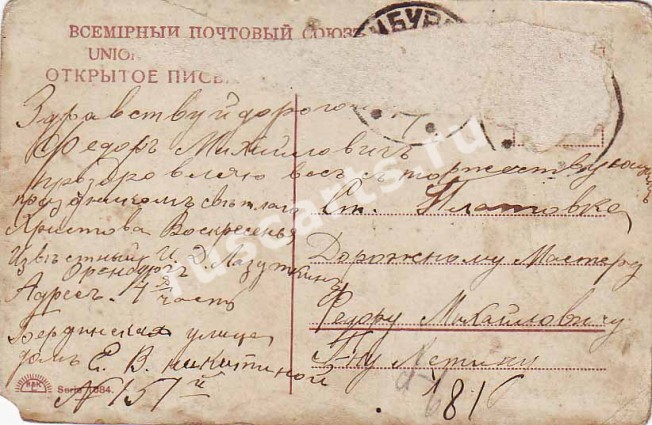 ВСЕМІРНЫЙ ПОЧТОВЫЙ СОЮЗЪ
UNION
ОТКРЫТОЕ ПИСЬ
Здравствуй дорогой
Федоръ Михайловичъ
васъ съ торжествующимъ
праздникомъ свѣтлаго
Христова Воскресенья
Извѣстный И. Д. Лазуткинъ
Оренбург
Адресъ. 1я часть
Бердинская улица
домъ Е. В. Никитиной
№ 151 й
Ст. Платовка
Дорожному Мастеру
Федору Михайловичу
1816
Serie 384.
ruscarts.ru